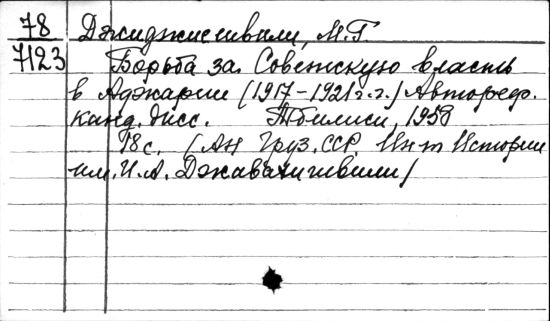 78 Джиджисшвили, М.Г.
7123 Борьба за Советскую власть
в Аджарии (1917-1921г.г.) Автореф.
канд. дисс. Тбилиси, 1959
18с. (АН Груз.ССР. Ин-т Истории
им. И.А. Джавахишвили)